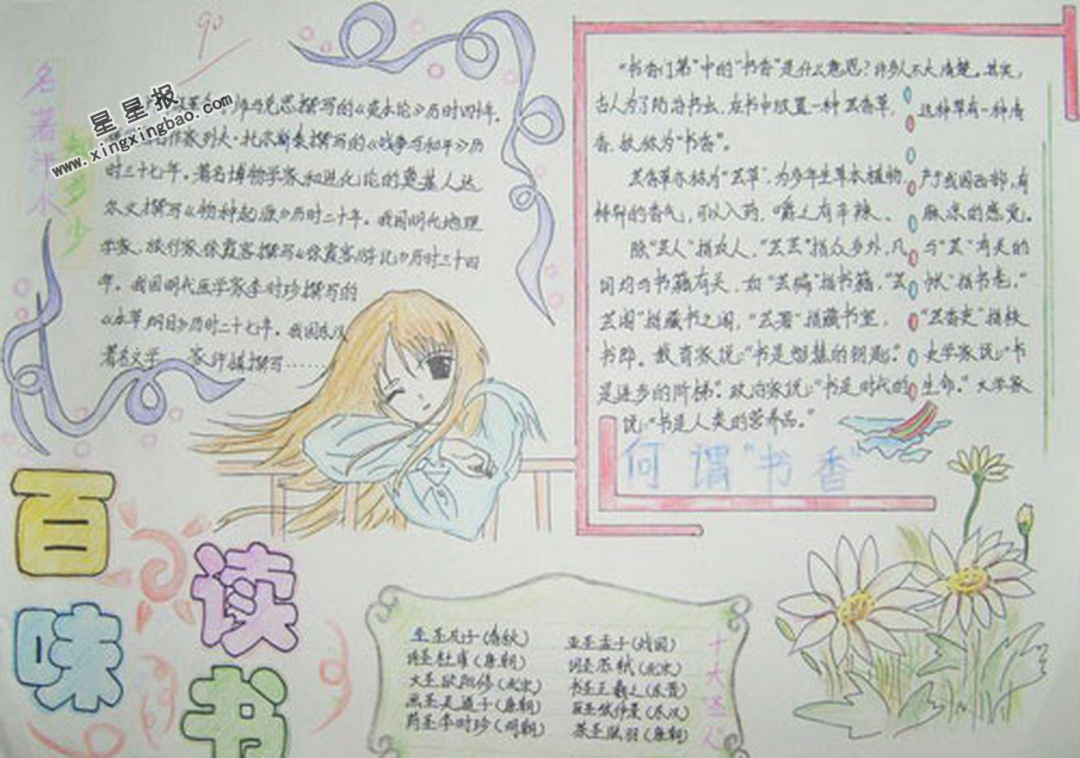 90
星星报
www.xingxingbao.com
名著
多少
师马克思撰写的《资本论》历时四十年。
作家列夫·托尔斯泰撰写的《战争与和平》历
时三十七年。著名博物学家和进化论的奠基人达
尔文撰写《物种起源》历时二十年。我国明代地理
学家、旅行家徐霞客撰写《徐霞客游记》历时三十四
年。我国明代医学家李时珍撰写的
《本草纲目》历时二十七年。我国东汉
著名文学 家 撰写……
"书香门第"中的"书香"是什么意思?许多人不大清楚。其实,
古人为了防治书虫,在书中放置一种芸香草, 这种草有一种清
香,故称为"书香"。
芸香草亦称为"芸草",为多年生草本植物, 产于我国西部,有
特异的香气,可以入药,嚼之有辛辣、 麻凉的感觉。
除"芸人"指农人,"芸芸"指众多外,凡 与"芸"有关的
词均与书籍有关,如"芸编"指书籍,"芸 帙"指书卷,"
芸阁"指藏书之阁,"芸署"指藏书室, "芸香吏"指校
书郎。教育家说:"书是智慧的钥匙。" 史学家说:"书
是进步的阶梯。"政治家说:"书是时代的 生命。"文学家
说:"书是人类的营养品。"
何谓"书香"
百味
读书
十大圣人
至圣孔子(春秋) 亚圣孟子(战国)
诗圣杜甫(唐朝) 词圣苏轼(北宋)
文圣欧阳修(北宋) 书圣王羲之(东晋)
画圣吴道子(唐朝) 医圣张仲景(东汉)
药圣李时珍(明朝) 茶圣陆羽(唐朝)